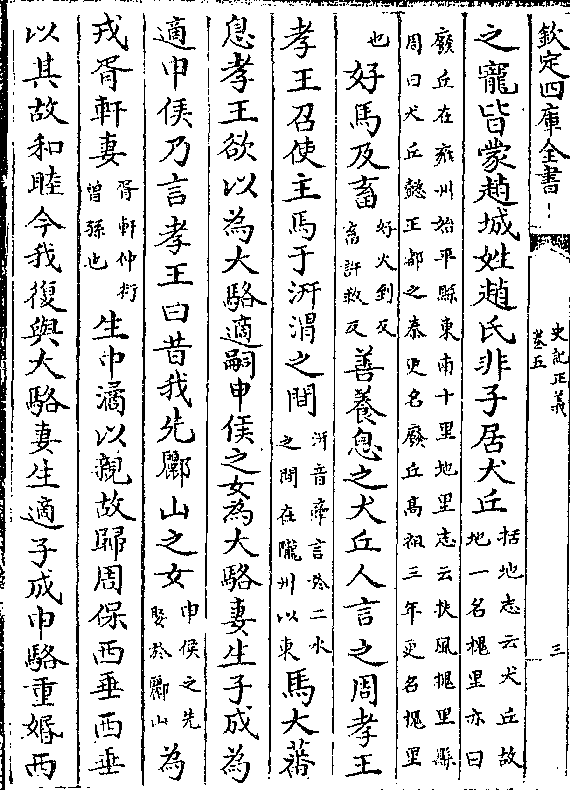 欽定四庫全書
史記正義
卷五
三
之寵皆蒙趙城姓趙氏非子居犬丘
括地志云犬丘故
地一名槐里亦曰
廢丘在雍州始平縣東南十里地里志云扶風槐里縣
周曰犬丘懿王都之秦更名廢丘髙祖三年更名槐里
也
好馬及畜
好火到反
畜許救反
善養息之犬丘人言之周孝王
孝王召使主馬于汧渭之間
汧音牽言於二水
之間在隴州以東
馬大蕃
息孝王欲以為大駱適嗣申侯之女為大駱妻生子成為
適申侯乃言孝王曰昔我先酈山之女
申侯之先
娶於酈山
為
戎胥軒妻
胥軒仲衍
曾孫也
生中潏以親故歸周保西垂西垂
以其故和睦今我復與大駱妻生適子成申駱重婚西